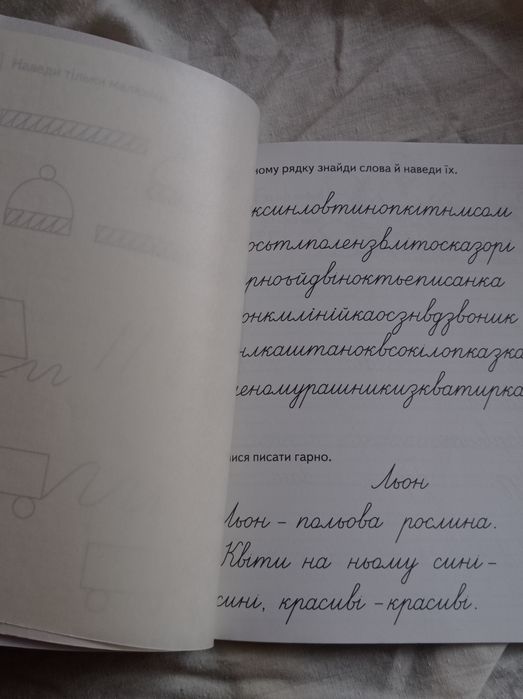 Наведи тільки малюнки
ному рядку знайди слова й наведи їх.
ксинловтинопкітнмсом
осьтлполензвлітосказорі
рноьйдвіноктьеписанка
онкмлінійкаосзнвдзвоник
нлкаштанокквсокілопказка
еномурашникизкватирка
ися писати гарно.
Льон
Льон – польова рослина.
Квіти на ньому сині –
сині, красиві – красиві.